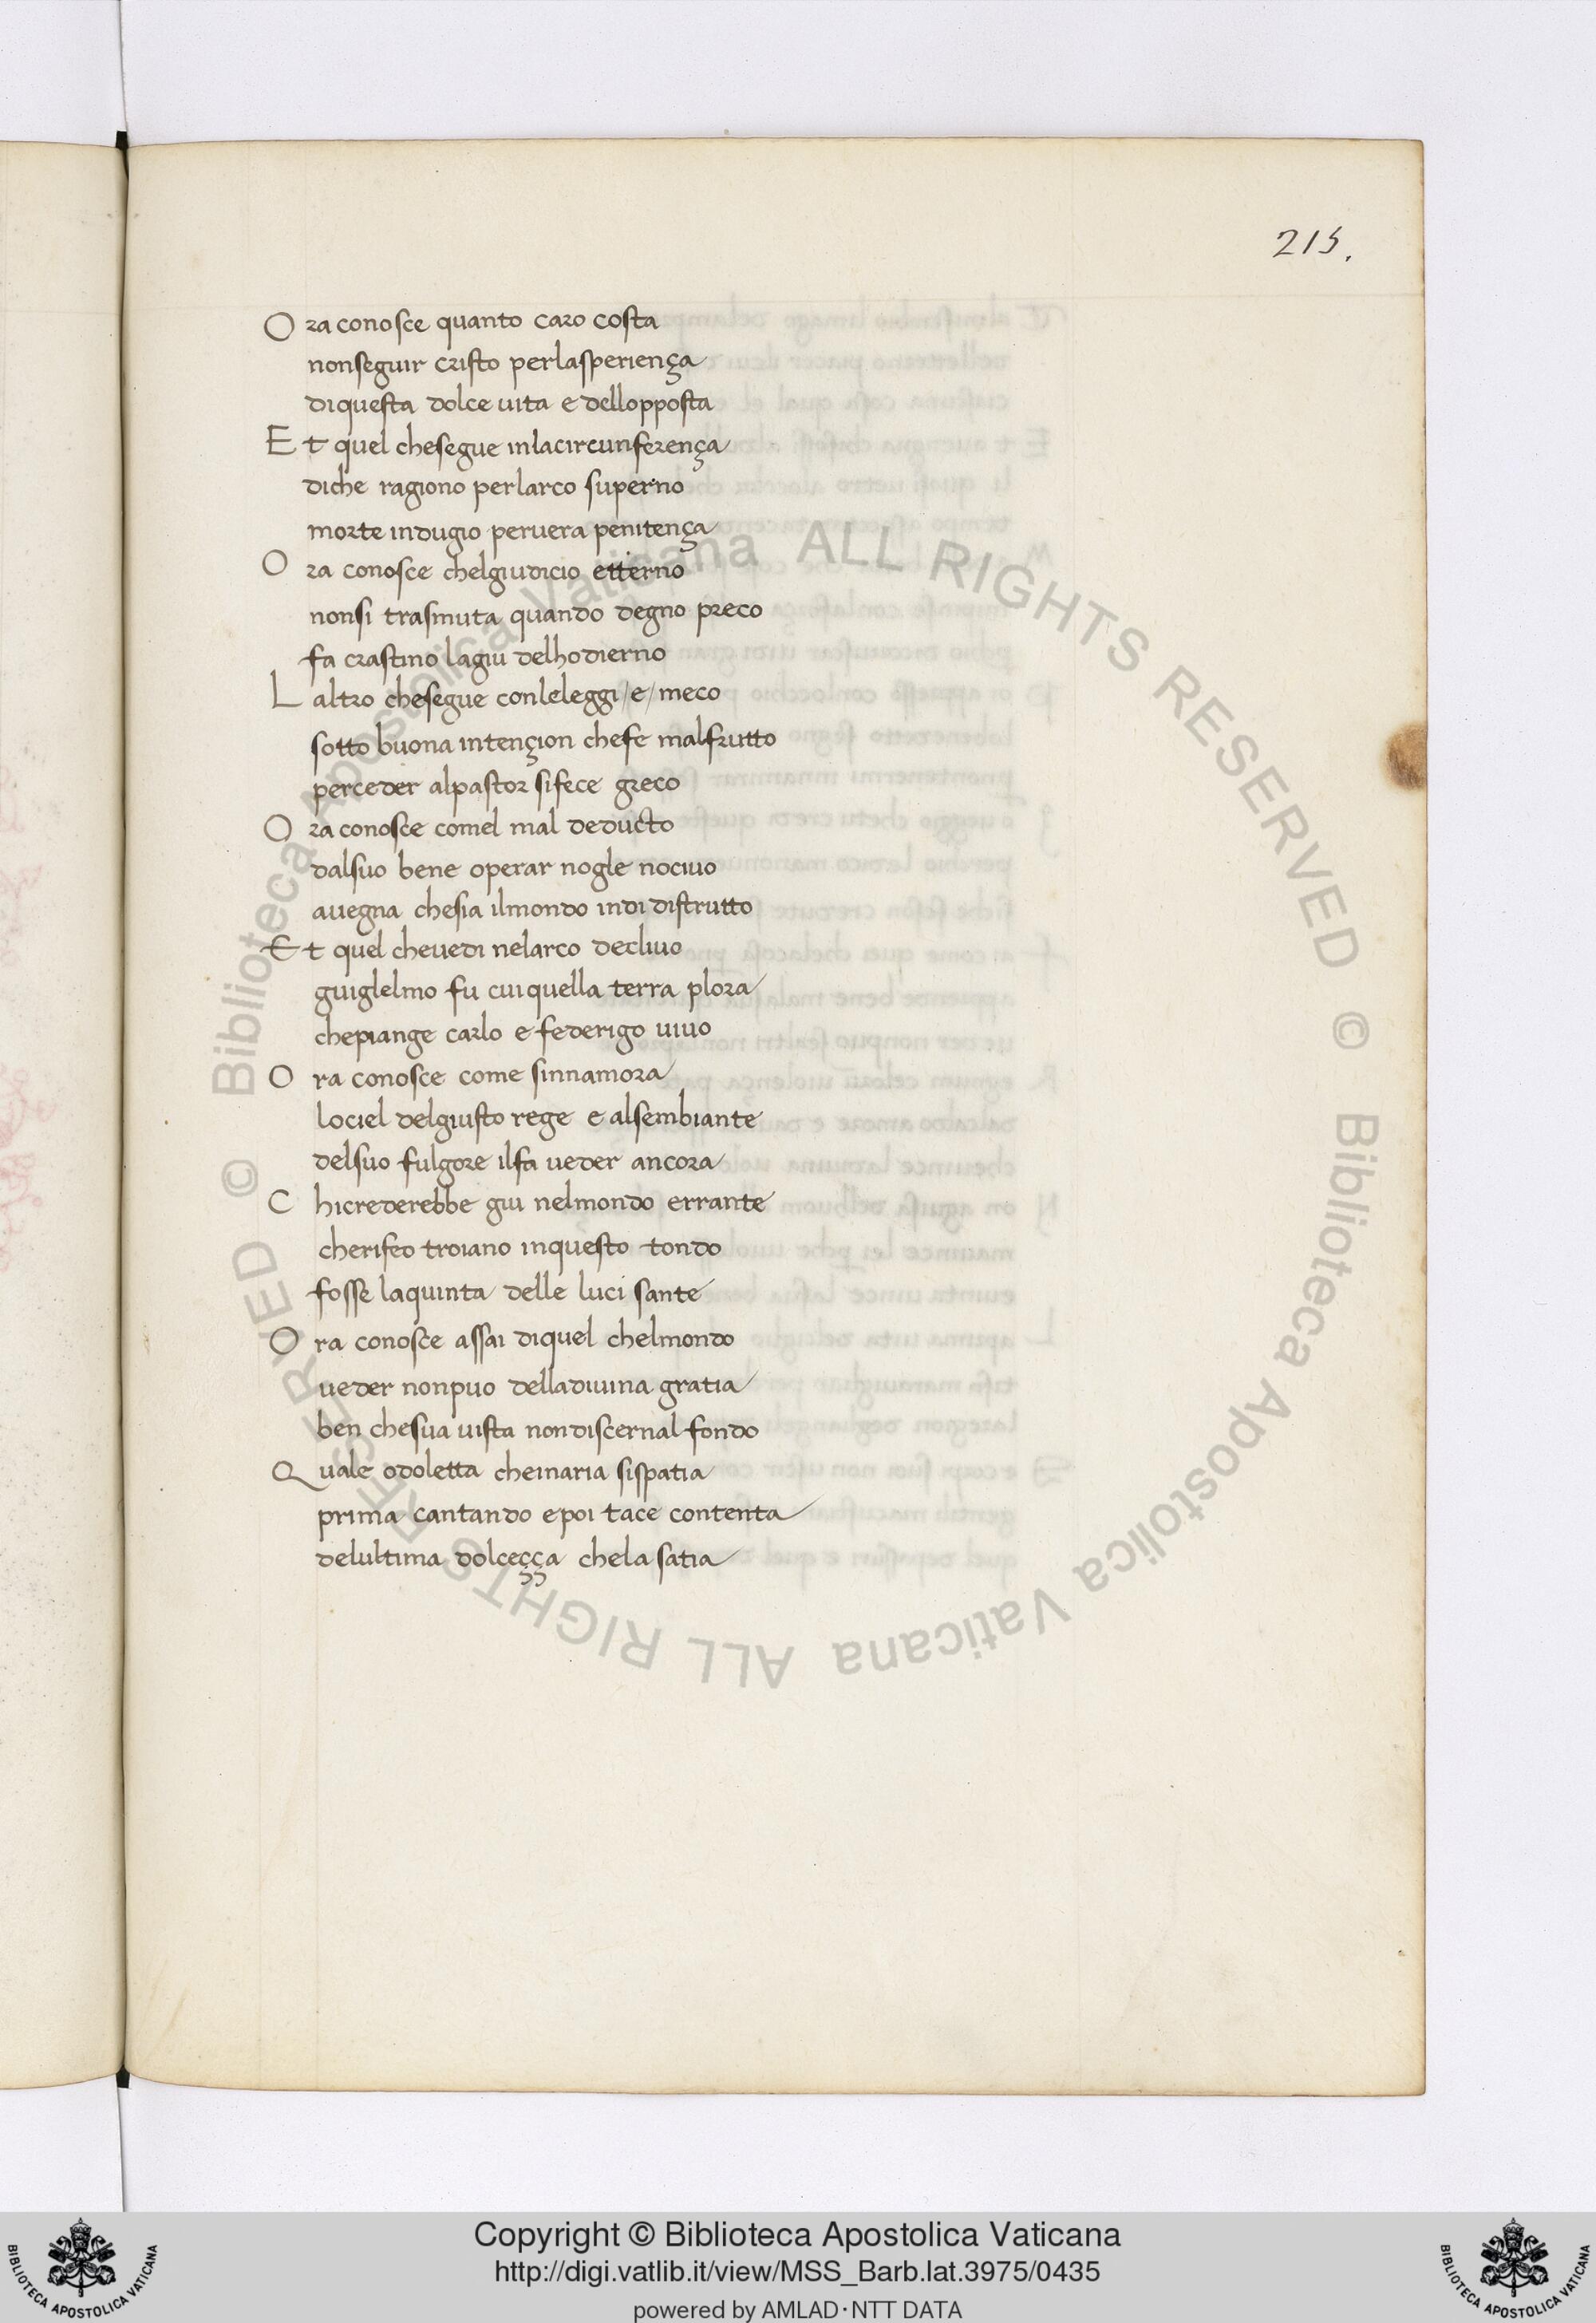 215.
O ra conosce quanto caro costa
nonseguir cristo perlasperiença
diquesta dolce uita e dellopposta
E t quel chesegue inlacircunferença
diche ragiono perlarco superno
morte indugio peruera penitença
O ra conosce chelgiudicio etterno
nonsi trasmuta quando degno preco
fa crastino lagiu delhodierno
L altro chesegue conleleggi/e/meco
sotto buona intençion chefe malfrutto
perceder alpastor sifece greco
O ra conosce comel mal deducto
dalsuo bene operar nogle nociuo
auegna chesia ilmondo indi distrutto
E t quel cheuedi nelarco decliuo
guiglelmo fu cuiquella terra plora
chepiange carlo e federigo uiuo
O ra conosce come sinnamora
lociel delgiusto rege e alsembiante
delsuo fulgore ilfa ueder ancora
C hicrederebbe giu nelmondo errante
cherifeo troiano inquesto tondo
fosse laquinta delle luci sante
O ra conosce assai diquel chelmondo
ueder nonpuo delladiuina gratia
ben chesua uista nondiscernal fondo
Q uale odoletta cheinaria sispatia
prima cantando epoi tace contenta
delultima dolceçça chela satia
© Biblioteca Apostolica Vaticana ALL RIGHTS RESERVED © Biblioteca Apostolica Vaticana ALL RIGHTS RESERVED
Copyright © Biblioteca Apostolica Vaticana
http://digi.vatlib.it/view/MSS_Barb.lat.3975/0435
powered by AMLAD·NTT DATA
BIBLIOTECA APOSTOLICA VATICANA
BIBLIOTECA APOSTOLICA VATICANA